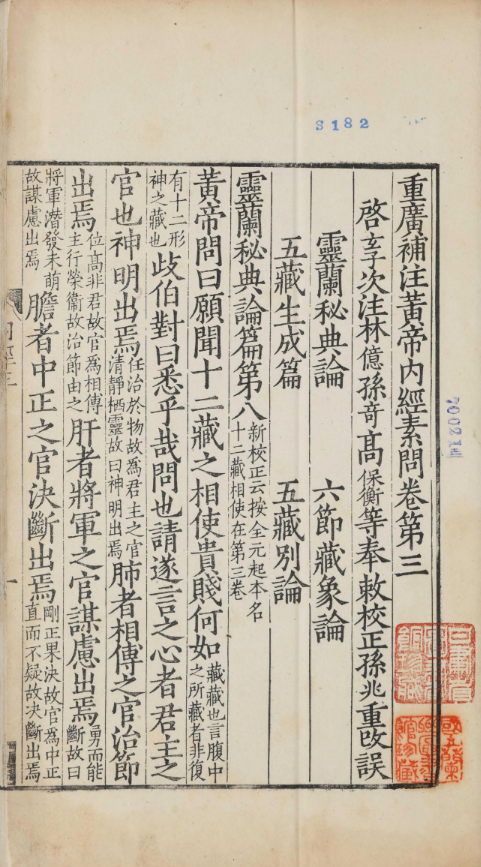 S182
重廣補注黃帝内經素問卷第三
啓玄子次注林億孫竒高保衡等奉敕校正孫兆重改誤
靈蘭秘典論 六節藏象論
五藏生成篇 五藏別論
靈蘭秘典論篇第八 新校正云按全元起本名十二藏相使在第三卷
黃帝問曰願聞十二藏之相使貴賤何如 藏藏也言腹中之所藏者非復
有十二形神之藏也 歧伯對曰悉乎哉問也請遂言之心者君主之
官也神明出焉 任治於物故爲君主之官清靜栖靈故曰神明出焉 肺者相傅之官治節
出焉 位高非君故官爲相傅主行榮衞故治節由之 肝者將軍之官謀慮出焉 勇而能斷故曰
將軍潛發未萌故謀慮出焉 膽者中正之官決斷出焉 剛正果決故官爲中正直而不疑故決斷出焉
一